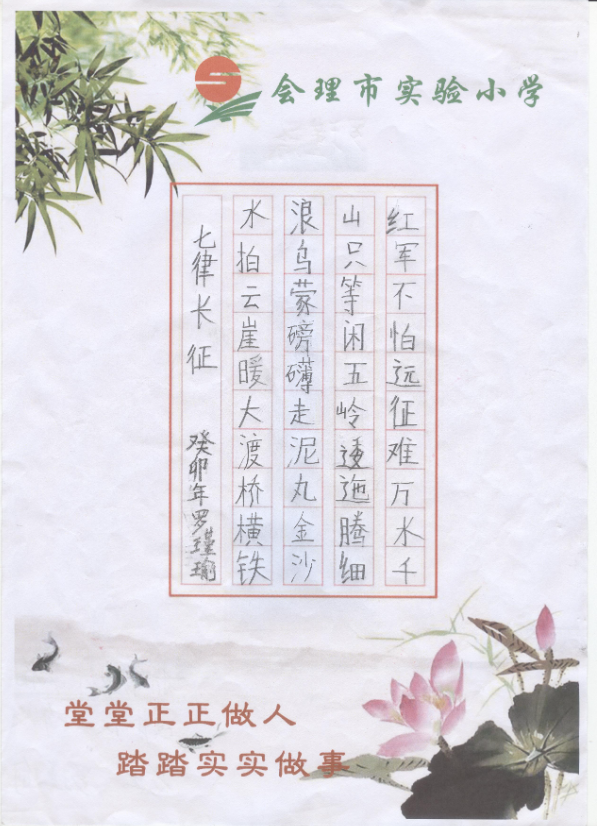 会理市实验小学
红军不怕远征难万水千
山只等闲五岭逶迤腾细
浪乌蒙磅礴走泥丸金沙
水拍云崖暖大渡桥横铁
七律长征 癸卯年罗瑾瑜
堂堂正正做人
踏踏实实做事